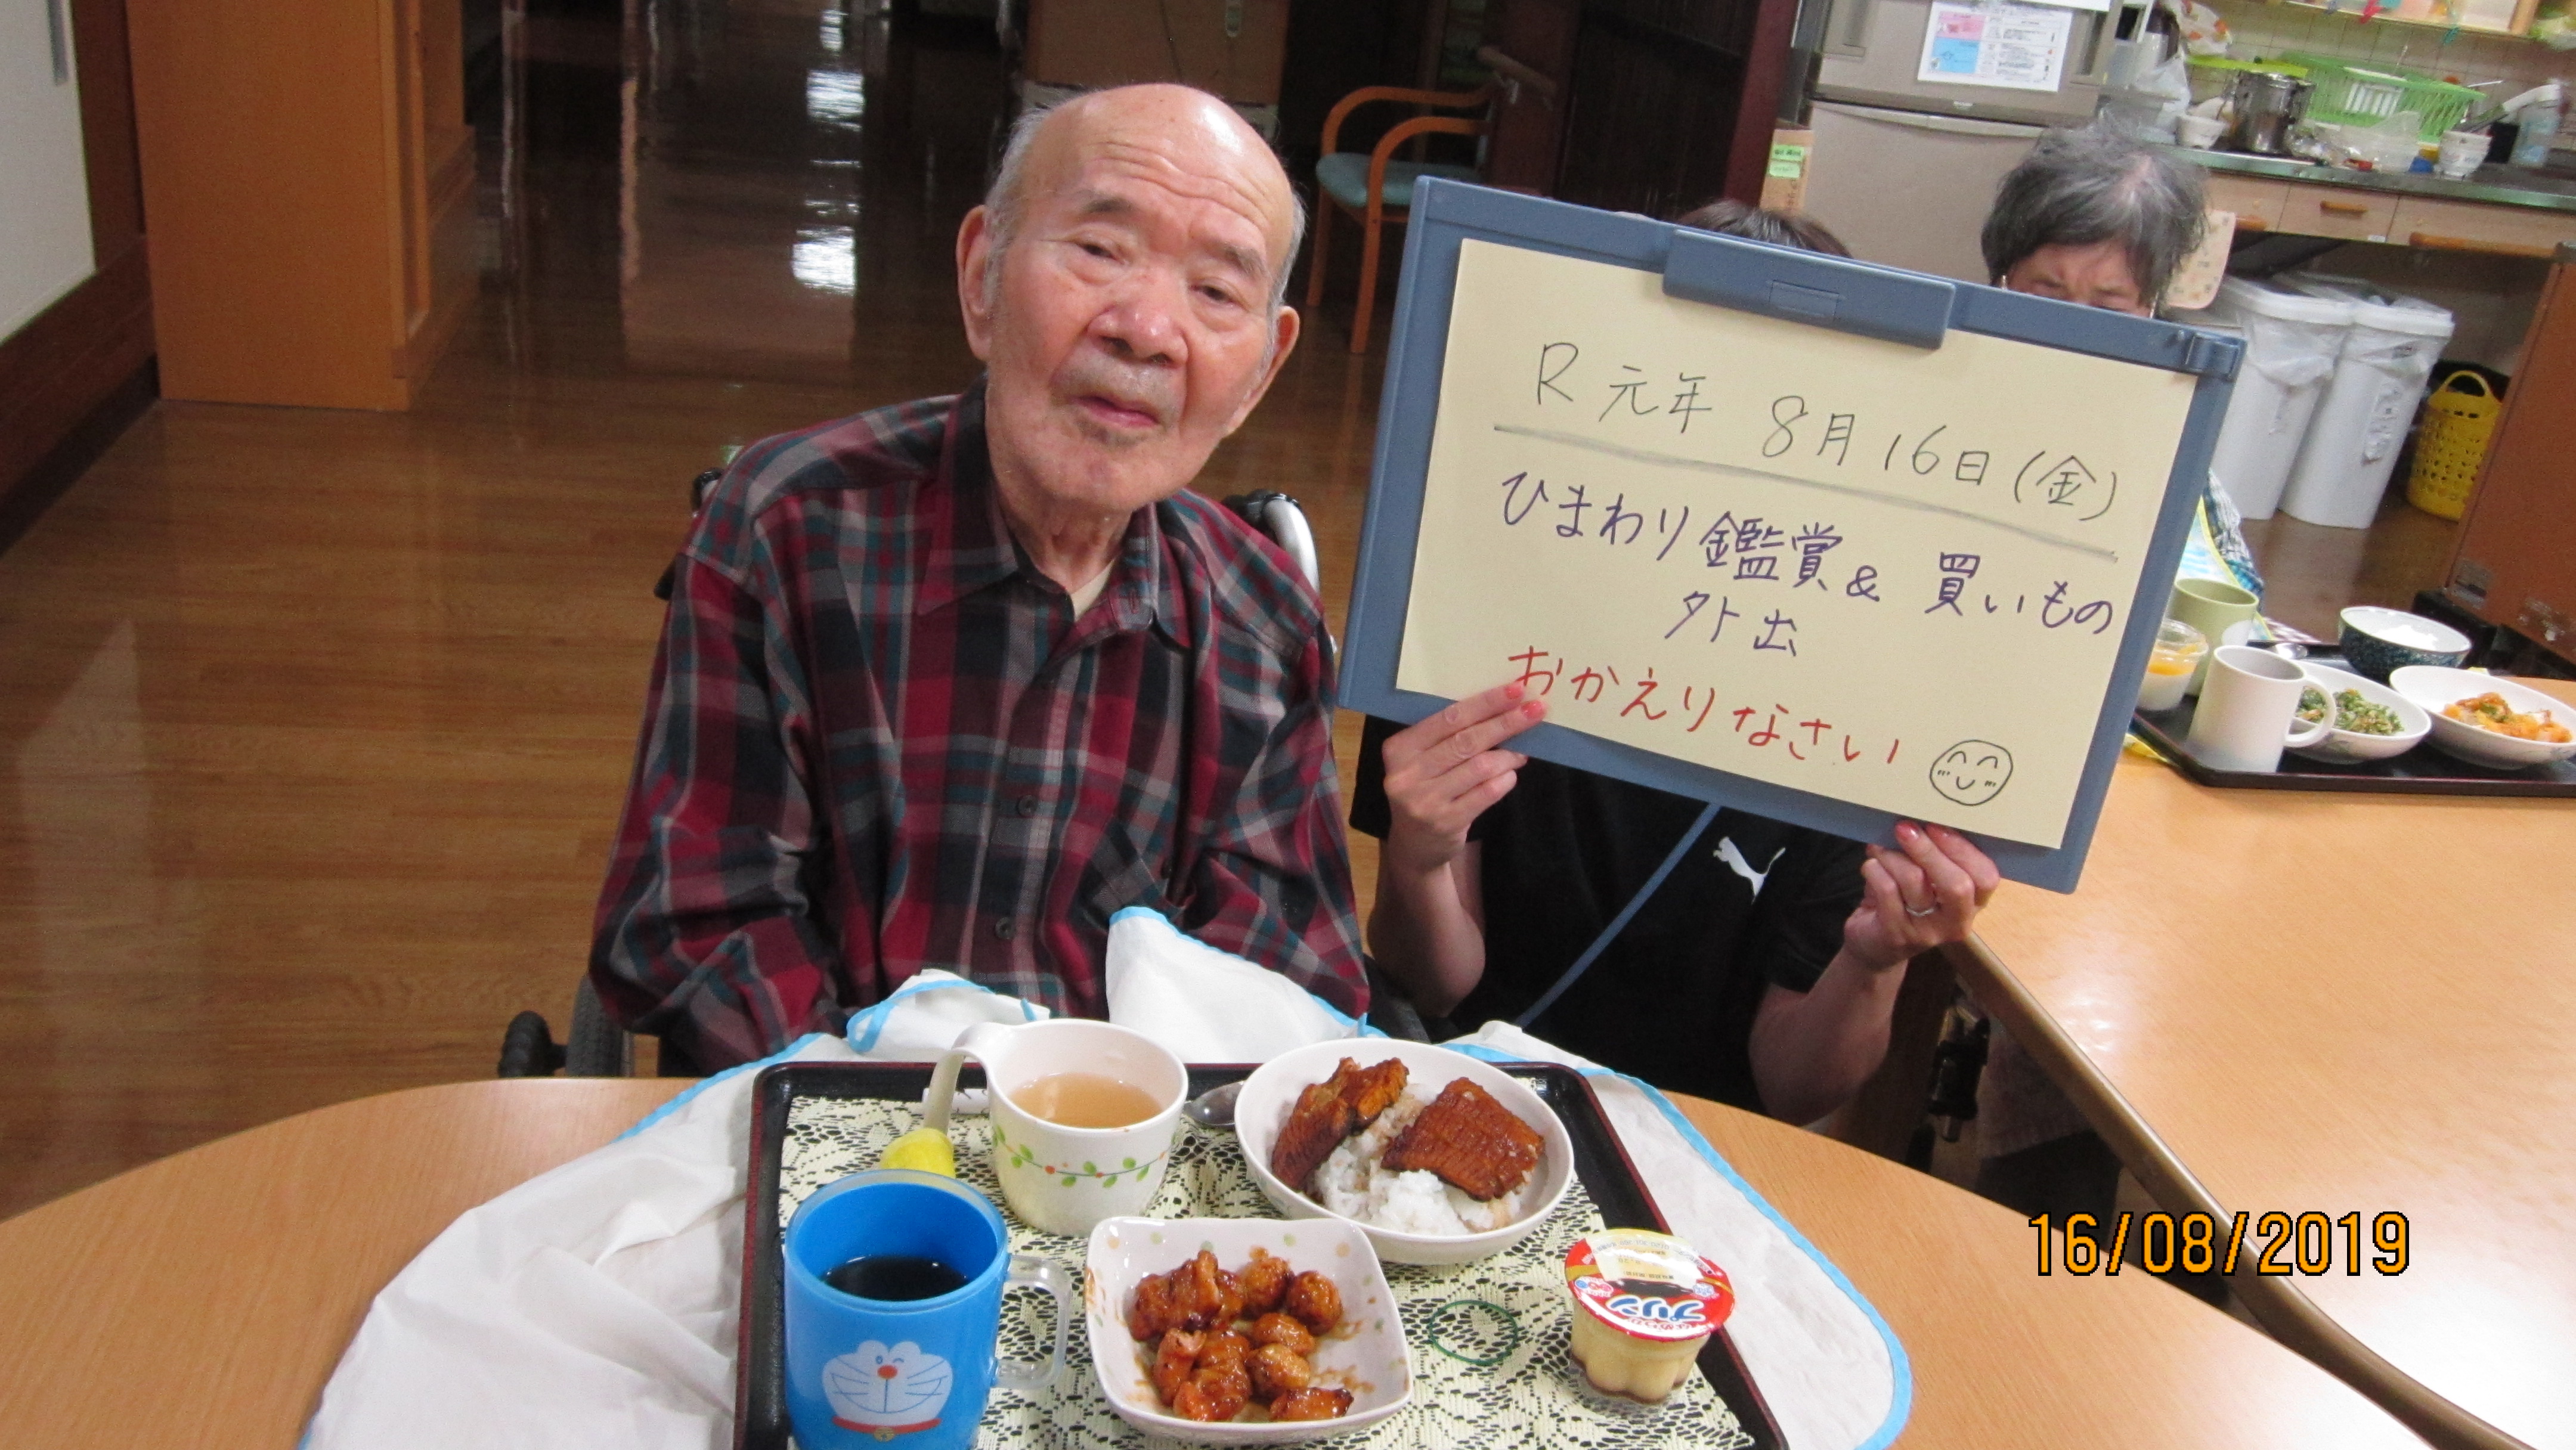 R元年 8月16日(金)
ひまわり鑑賞& 買いもの
外出
おかえりなさい
プリン
16/08/2019